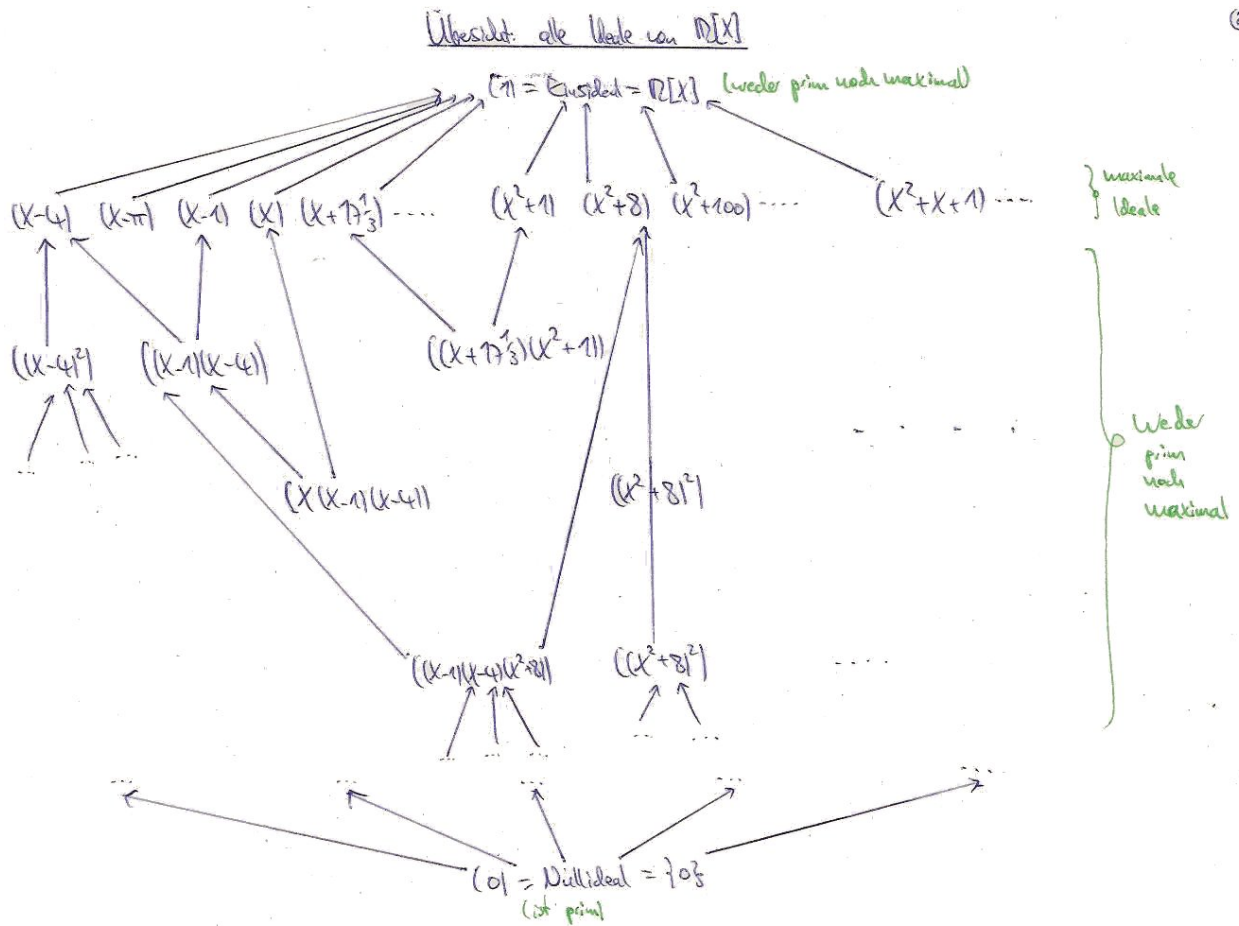 Übersicht: alle Ideale von ℝ[X]
(1) = Einsideal = ℝ[X] (weder prim noch maximal)
(X-4) (X-π) (X-1) (X) (X+17⅓) ····· (X²+1) (X²+8) (X²+100) ····· (X²+X+1) ····
maximale
Ideale
((X-4)²) ((X-1)(X-4)) ((X+17⅓)(X²+1))
Weder
prim
noch
maximal
(X(X-1)(X-4)) ((X²+8)²)
((X-1)(X-4)(X²+8)) ((X²+8)²) ····
(0) = Nullideal = {0}
(ist prim)